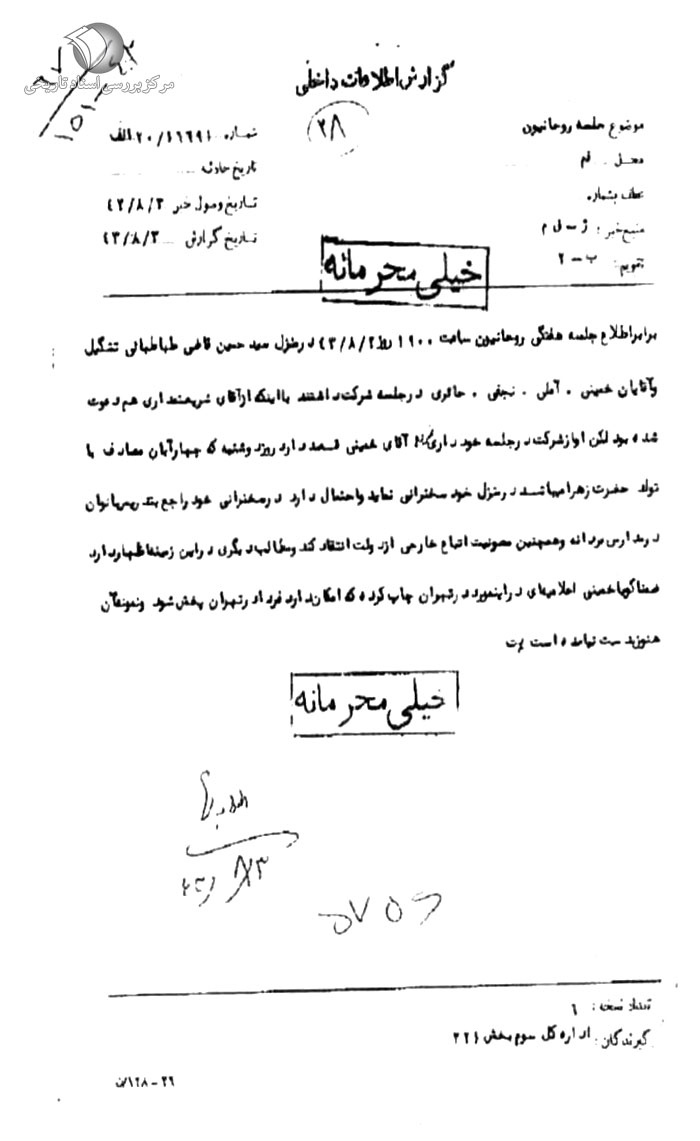 مرکز بررسی اسناد تاریخی
گزارش اطلاعات داخلی
۲۸
موضوع جلسه روحانیون
محل . قم
عطف بشماره
منبع خبر : ژ - ل م
تقویم : ب - ۲
شماره ۲۰/۱۱۶۹۱ الف
تاریخ حادثه
تاریخ وصول خبر ۴۳/۸/۳
تاریخ گزارش ۴۳/۸/۳
خیلی محرمانه
برابر اطلاع جلسه هفتگی روحانیون ساعت ۱۹۰۰ روز ۴۳/۸/۲ در منزل سید حسین قاضی طباطبائی تشکیل
وآقایان خمینی . آملی . نجفی . حائری درجلسه شرکت داشتند بااینکه ازآقای شریعتمداری هم دعوت
شده بود لکن اوازشرکت درجلسه خود داری آقای خمینی قصد دارد روزدوشنبه که چهارآبان مصادف با
تولد حضرت زهرا میباشد درمنزل خود سخنرانی نماید واحتمال دارد درسخنرانی خود راجع بتدریس بانوان
درمدارس مردانه وهمچنین مصونیت اتباع خارجی ازدولت انتقاد کند ومطالب دیگری دراین زمینه اظهاردارد
ضمناگویا خمینی اعلامیه‌ای دراینمورد درتهران چاپ کرده که امکان دارد فردا درتهران پخش شود ونمونه آن
هنوزبدست نیامده است
خیلی محرمانه
۵۷۵۶
تعداد نسخه : ۱
گیرندگان : اداره کل سوم بخش ۳۲۱